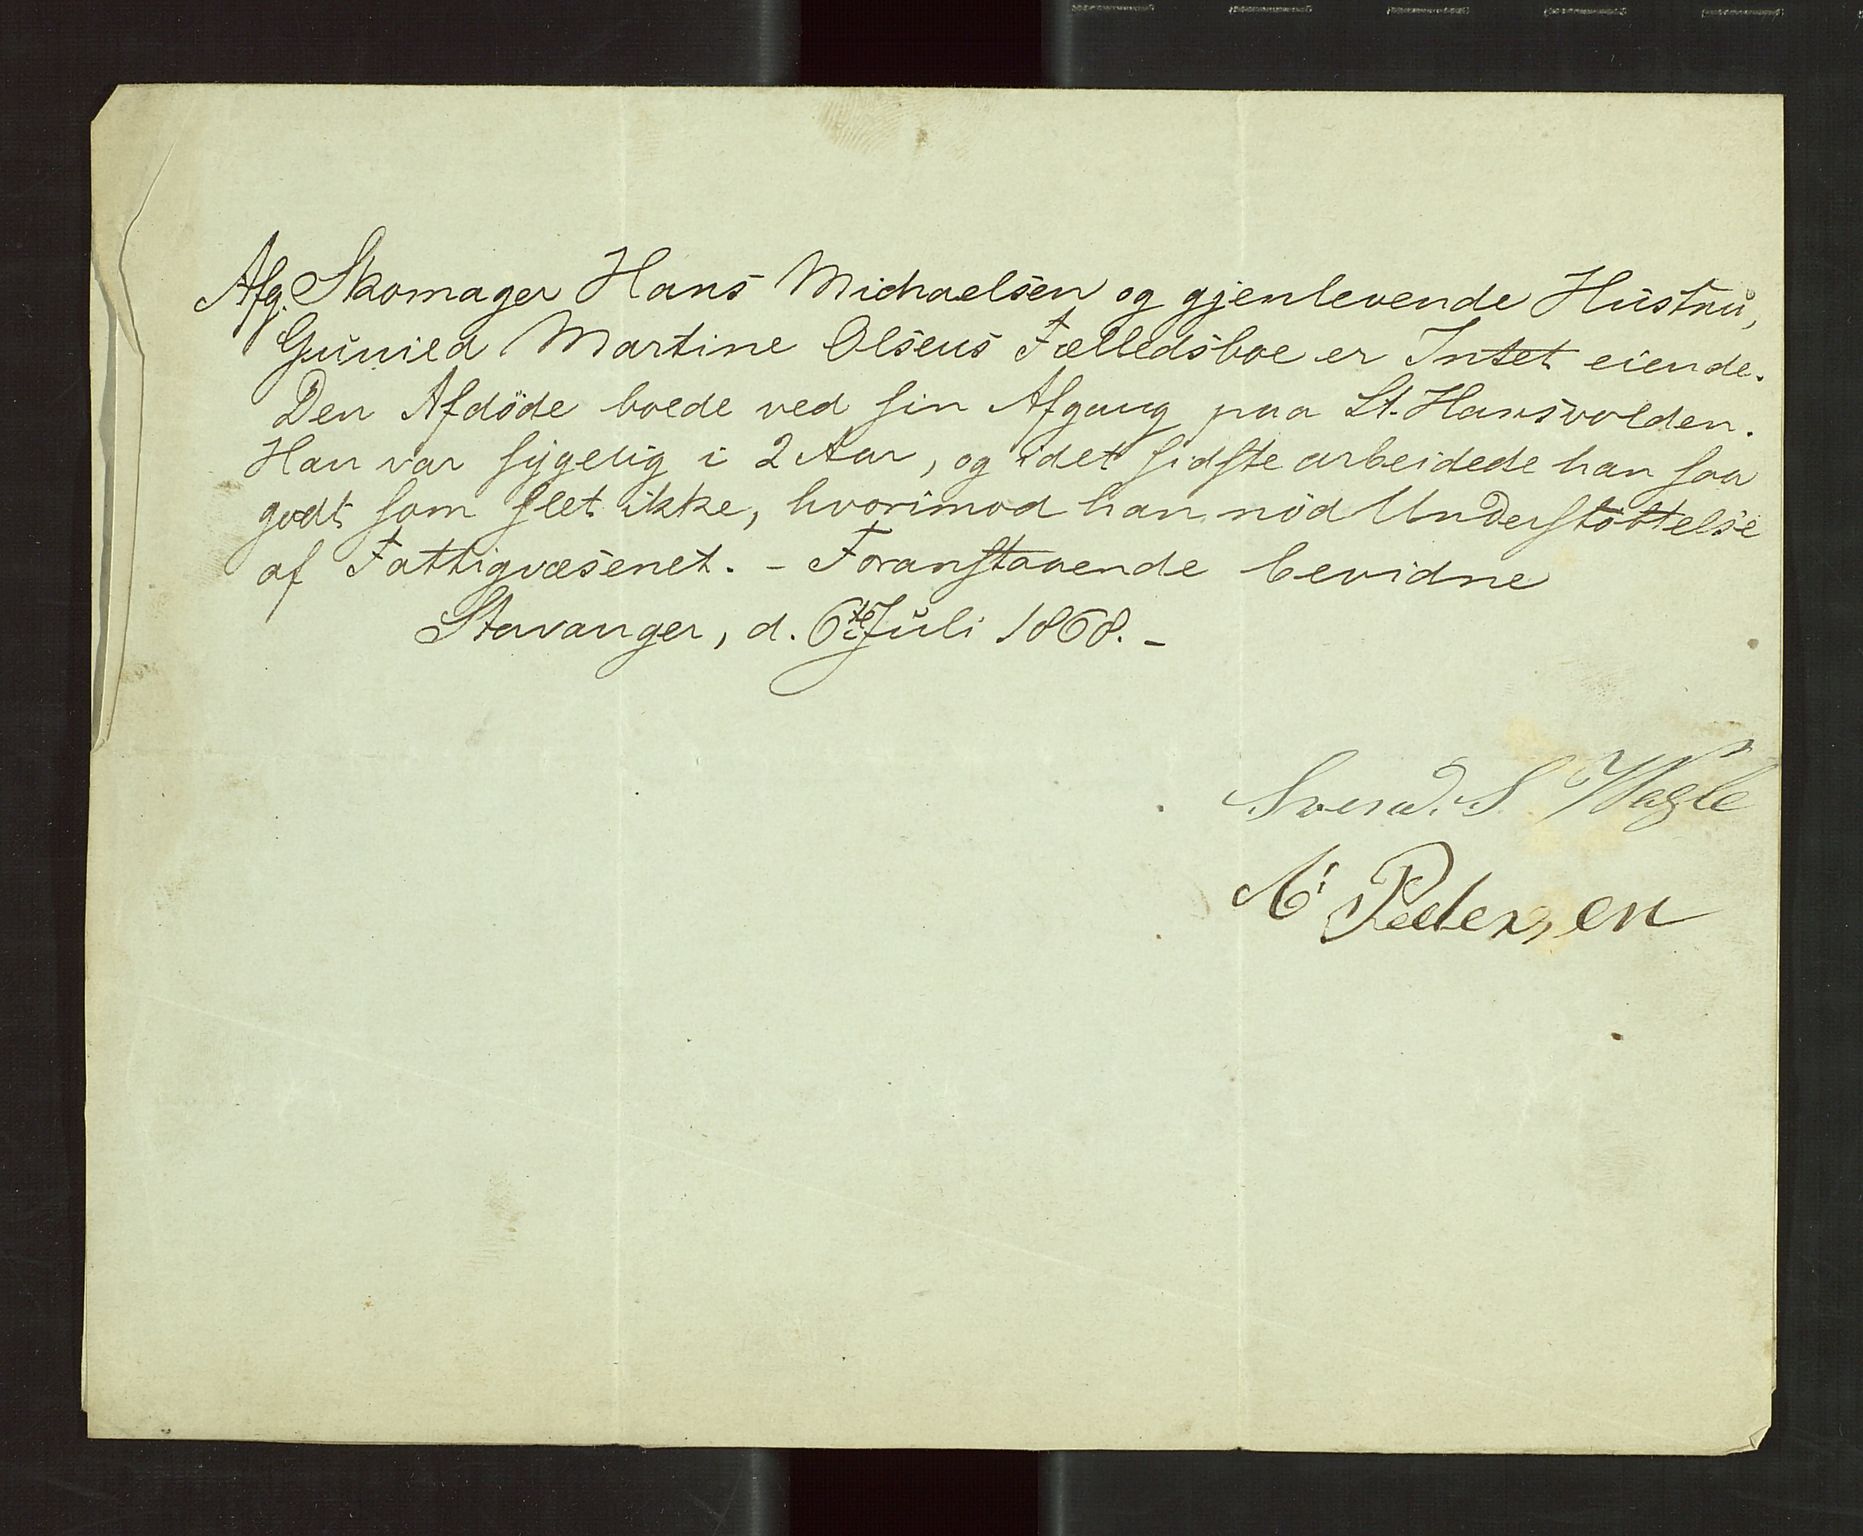 Afg. Skomager Hans Michaelsen og gjenlevende Hustru,
Gunild Martine Olsens Fælledsboe er Intet eiende.
Den Afdöde boede ved sin Afgang paa St. Hansvolden.
Han var sygelig i 2 Aar, og idet sidste arbeidede han saa
godt som slet ikke, hvorimod han nöd Understöttelse
af Fattigvæsenet. - Foranstaaende bevidne
Stavanger, d. 6te Juli 1868. -
Svend. S Wagle
Pedersen